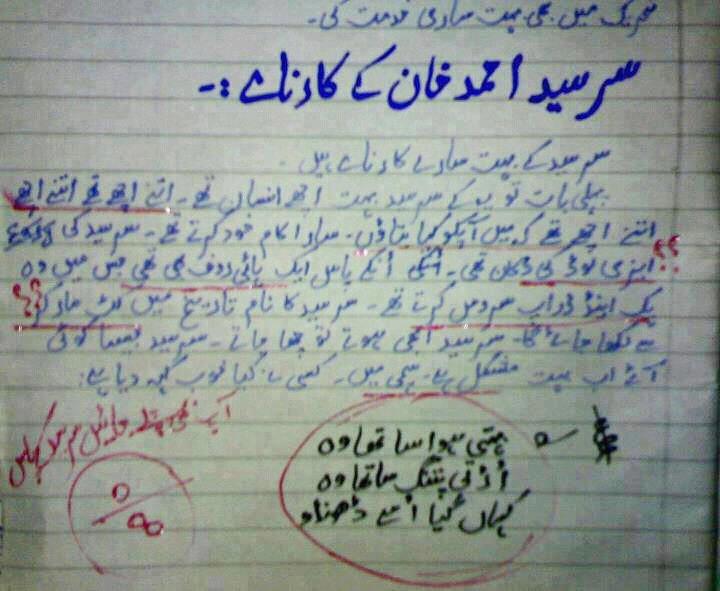 تحریک میں بھی بہت ساری خدمت کی۔
سر سید احمد خان کے کارنامے :۔
سر سید کے بہت سارے کارنامے ہیں۔
پہلی بات تو یہ کے سر سید بہت اچھے انسان تھے۔ اتنے اچھے تھے اتنے اچھے
اتنے اچھے تھے کہ میں آپکو کیا بتاؤں۔ سارا کام خود کرتے تھے۔ سر سید کی
اینری فوڈ کی دکان تھی۔ انکے پاس ایک ہائی روف بھی تھی جس میں وہ ؟؟
پک اینڈ ڈراپ سروس کرتے تھے۔ سر سید کا نام تاریخ میں مار کر ؟؟
سے لکھا جائے گا۔ سر سید ابھی ہوتے تو چھا جاتے۔ سر سید جیسا کوئی
آئے اب بہت مشکل ہے۔ سچی میں۔ کسی نے کیا خوب کہہ دیا ہے:
بہتی ہوا سا تھا وہ
اڑتی پتنگ سا تھا وہ
کہاں گیا اسے ڈھونڈو
آپ